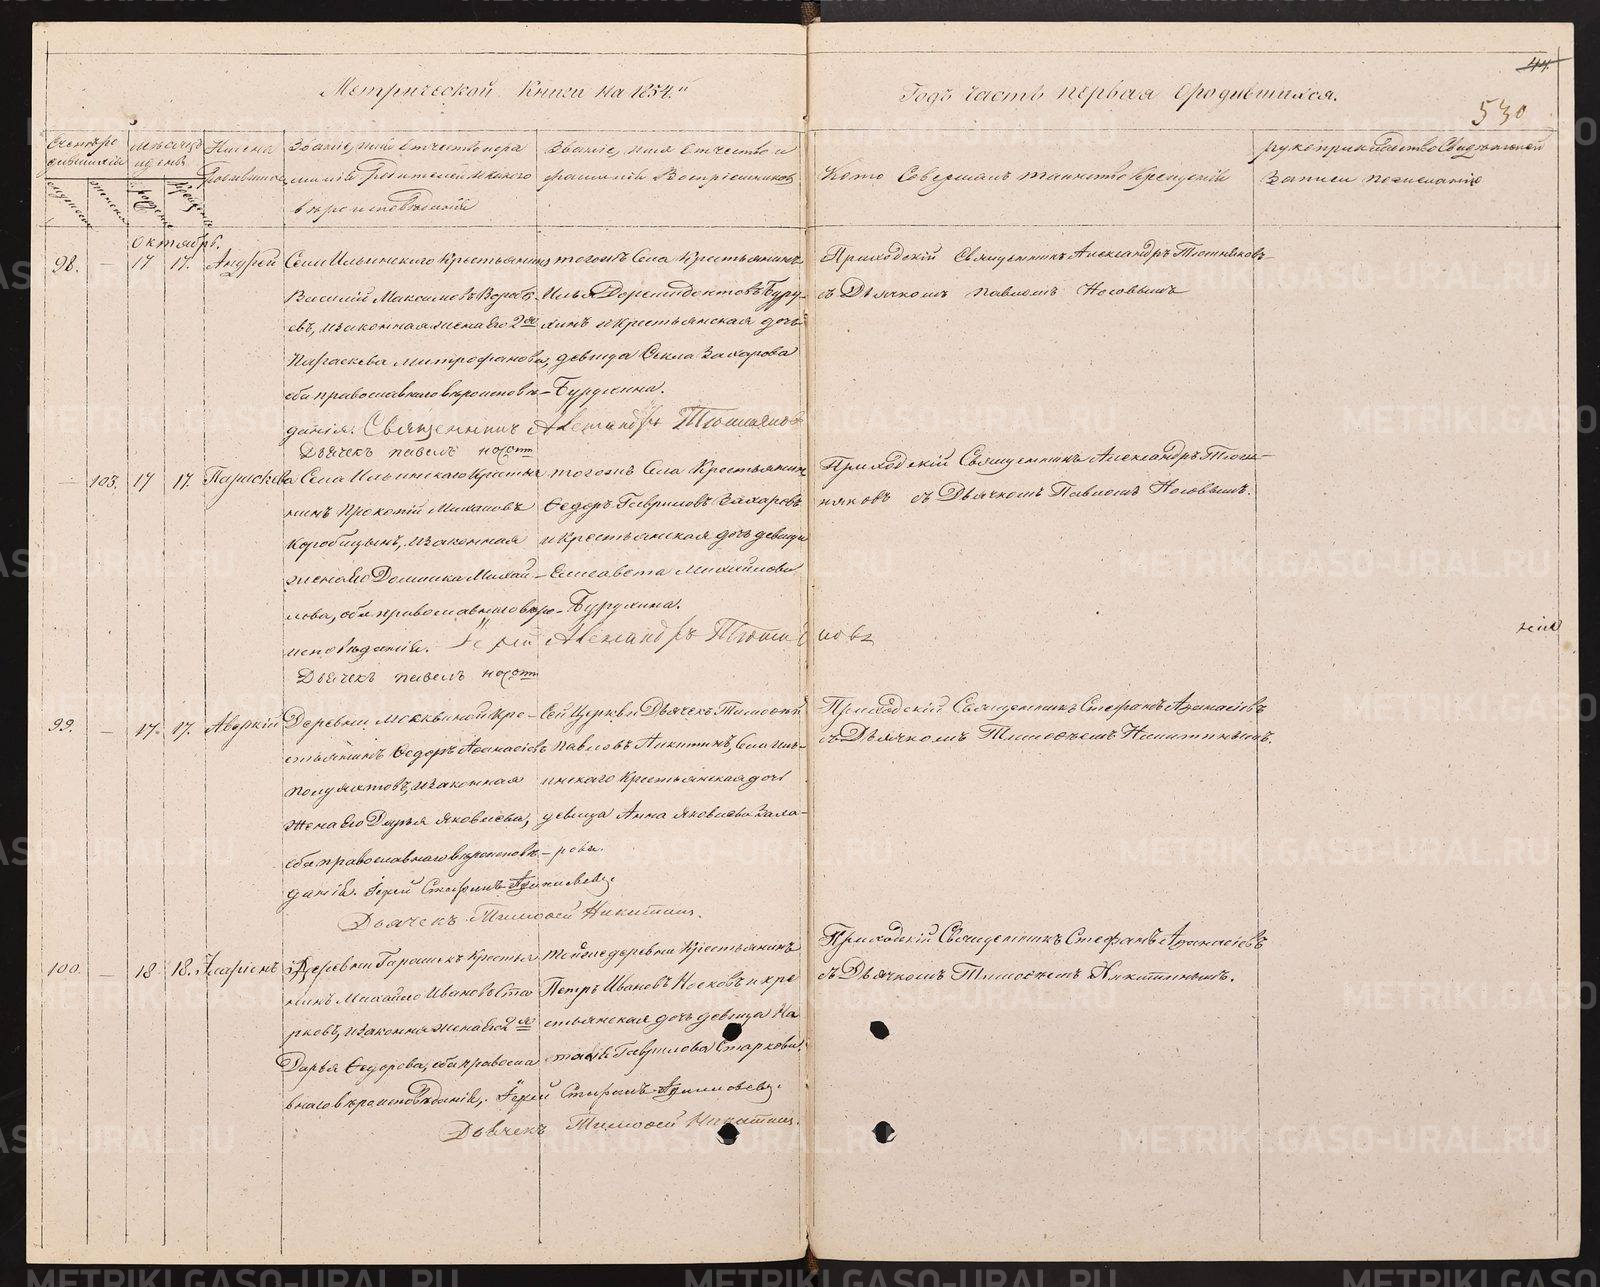 Метрической Книги на 1854.й
Годъ часть перваяОродившихся.
44
530
Счетъ ро
дившихся
Мѣсяцъ
и день
Имена
Родившихся
Званіе, имя Отчество и фа
милія Родителей и какого
вѣроисповѣданія
Званіе, имя Отчество и
фамилія Воспріемниковъ
Кто Совершалъ таинство Крещенія
рукоприкладство Свидѣтелей
Записи по желанію
Октябрь.
98. — 17 17. Андрей
Села Ильинскаго Крестьянинъ
Василій Максимовъ Воробь-
евъ, и законная жена Его 2я
Параскева Митрофанова,
оба православнаго вѣроисповѣ-
данія. Священникъ Александръ Тюшняковъ
Дьячекъ павелъ
тогожъ Села Крестьянинъ
Илья
и Крестьянская дочь
девица Ѳекла Захарова
Бурухина.
Приходскій Священникъ Александръ Тюшняковъ
съ Дьячкомъ Павломъ Носовымъ
— 103. 17 17. Параскева
Села Ильинскаго Крестья
нинъ Прокопій
Коробицынъ, и законная
жена Его Домника Михай-
лова, оба православнаго вѣро-
исповѣданія. Іерей Александръ Тюшняковъ
Дьячекъ павелъ
тогожъ Села Крестьянинъ
Ѳедоръ Гавриловъ Захаровъ
и Крестьянская дочь девица
Елисавета Михайлова
Бурухина.
Приходскій Священникъ Александръ Тюш-
няковъ съ Дьячкомъ Павломъ Носовымъ.
99. — 17. 17. Аверкій
Деревни Кре-
стьянинъ Ѳедоръ Аѳанасіевъ
Полуяхтовъ, и законная
жена Его Дарья Яковлева,
оба православнаго вѣроисповѣ-
данія. Іерей Стефанъ Аѳанасьевъ
Дьячекъ Тимоѳей Никитинъ.
Сей Церкви Дьячекъ Тимоѳей
Павловъ Никитинъ, Села Иль-
инскаго Крестьянская дочь
девица Анна Яковлева Заха-
рова.
Приходскій Священникъ Стефанъ Аѳанасіевъ
съ Дьячкомъ Тимоѳеемъ Никитинымъ.
100. — 18 18. Иларіонъ
Деревни Крестья
нинъ Михайло Ивановъ Ста
рковъ, и законная жена Его 2я
Дарья Ѳедорова, оба правосла
внаго вѣроисповѣданія. Іерей Стефанъ Аѳанасьевъ.
Дьячекъ Тимоѳей Никитинъ.
тойже деревни Крестьянинъ
Петръ Ивановъ Носковъ и кре
стьянская дочь девица На
талья Гаврилова Старкова.
Приходскій Священникъ Стефанъ Аѳанасіевъ
съ Дьячкомъ Тимоѳеемъ Никитинымъ.
METRIKI.GASO-URAL.RU